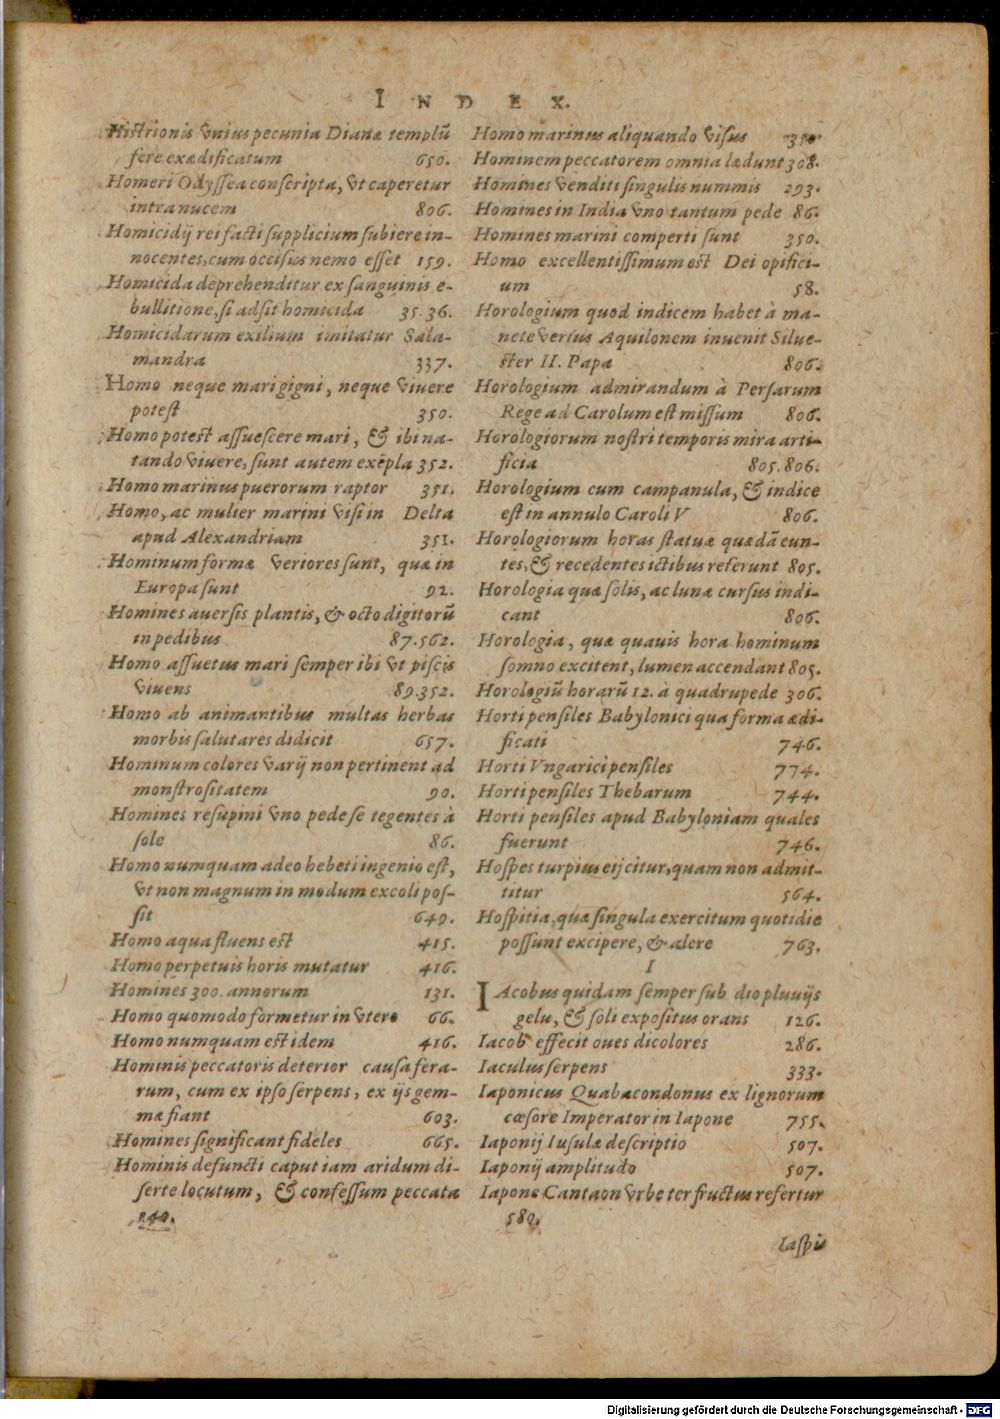 INDEX.
Histrionis vnius pecunia Dianæ templū
fere exædificatum 650.
Homeri Odyssea conscripta, vt caperetur
intra nucem 806.
Homicidij rei facti supplicium subiere in-
nocentes, cum occisus nemo esset 159.
Homicida deprehenditur ex sanguinis e-
bullitione, si adsit homicida 35.36.
Homicidarum exilium imitatur Sala-
mandra 337.
Homo neque mari gigni, neque viuere
potest 350.
Homo potest assuescere mari, & ibi na-
tando viuere, sunt autem exēpla 352.
Homo marinus puerorum raptor 351.
Homo, ac mulier marini visi in Delta
apud Alexandriam 351.
Hominum formæ veriores sunt, quæ in
Europa sunt 92.
Homines auersis plantis, & octo digitorū
in pedibus 87.562.
Homo assuetus mari semper ibi vt piscis
viuens 89.352.
Homo ab animantibus multas herbas
morbis salutares didicit 657.
Hominum colores varij non pertinent ad
monstrositatem 90.
Homines resupini vno pede se tegentes à
sole 86.
Homo numquam adeo hebeti ingenio est,
vt non magnum in modum excoli pos-
sit 649.
Homo aqua fluens est 415.
Homo perpetuis horis mutatur 416.
Homines 300. annorum 131.
Homo quomodo formetur in vtero 66.
Homo numquam est idem 416.
Hominis peccatoris deterior causa fera-
rum, cum ex ipso serpens, ex ijs gem-
mæ fiant 603.
Homines significant fideles 665.
Hominis defuncti caput iam aridum di-
serte locutum, & confessum peccata
140.
Homo marinus aliquando visus 350
Hominem peccatorem omnia lædunt 308.
Homines venditi singulis nummis 293.
Homines in India vno tantum pede 86.
Homines marini comperti sunt 350.
Homo excellentissimum est Dei opifici-
um 58.
Horologium quod indicem habet à ma-
nete versus Aquilonem inuenit Silue-
ster II. Papa 806.
Horologium admirandum à Persarum
Rege ad Carolum est missum 806.
Horologiorum nostri temporis mira arti-
ficia 805.806.
Horologium cum campanula, & indice
est in annulo Caroli V 806.
Horologiorum horas statuæ quædā eun-
tes, & recedentes ictibus referunt 805.
Horologia quæ solis, ac lunæ cursus indi-
cant 806.
Horologia, quæ quauis hora hominum
somno excitent, lumen accendant 805.
Horologiū horarū 12. à quadrupede 306.
Horti pensiles Babylonici qua forma ædi-
ficati 746.
Horti Vngarici pensiles 774.
Horti pensiles Thebarum 744.
Horti pensiles apud Babyloniam quales
fuerunt 746.
Hospes turpius eijcitur, quam non admit-
titur 564.
Hospitia, quæ singula exercitum quotidie
possunt excipere, & alere 763.
I
IAcobus quidam semper sub dio pluuijs
gelu, & soli expositus orans 126.
Iacob effecit oues dicolores 286.
Iaculus serpens 333.
Iaponicus Quabacondonus ex lignorum
cæsore Imperator in Iapone 755.
Iaponij Iusulæ descriptio 507.
Iaponij amplitudo 507.
Iapone Cantaon vrbe ter fructus refertur
580.
Iaspis
Digitalisierung gefördert durch die Deutsche Forschungsgemeinschaft - DFG